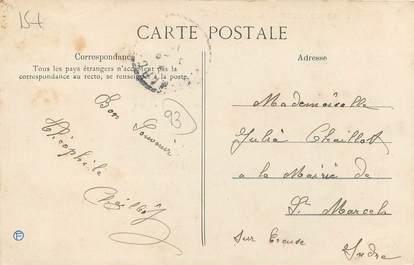 CARTE POSTALE
Correspondance
Tous les pays étrangers n'acceptent pas la
correspondance au recto, se renseigner à la poste.
Bon
Souvenir
Théophile
Chaillot
93
Adresse
Mademoiselle
Julia Chaillot
a la Mairie de
St Marcel
sur Creuse
Indre